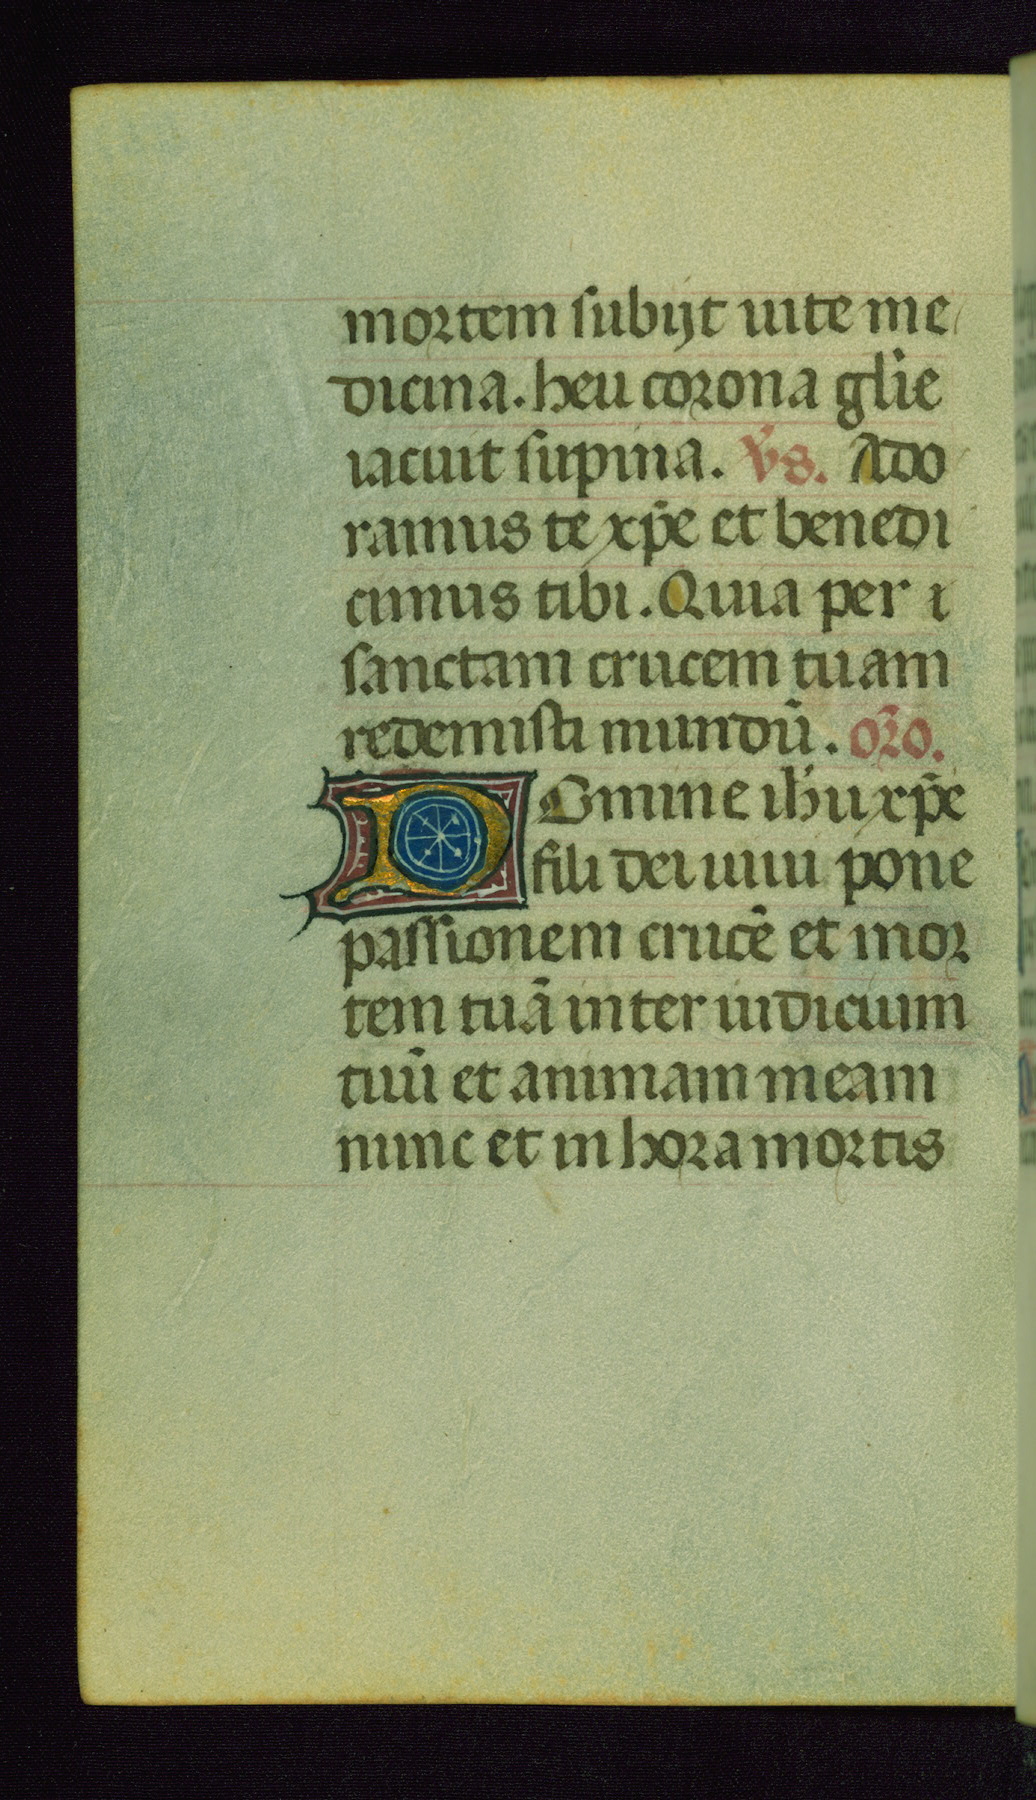 mortem subijt uite me
dicina. heu corona gl'ie
iacuit supina. v̄s. Ado
ramus te xp̄e et benedi
cimus tibi. Quia per i
sanctam crucem tuam
redemisti mundū. or̄o.
Domine ih̄u xp̄e
fili dei uiui pone
passionem crucē et mor
tem tuā inter iudicium
tuū et animam meam
nunc et in hora mortis